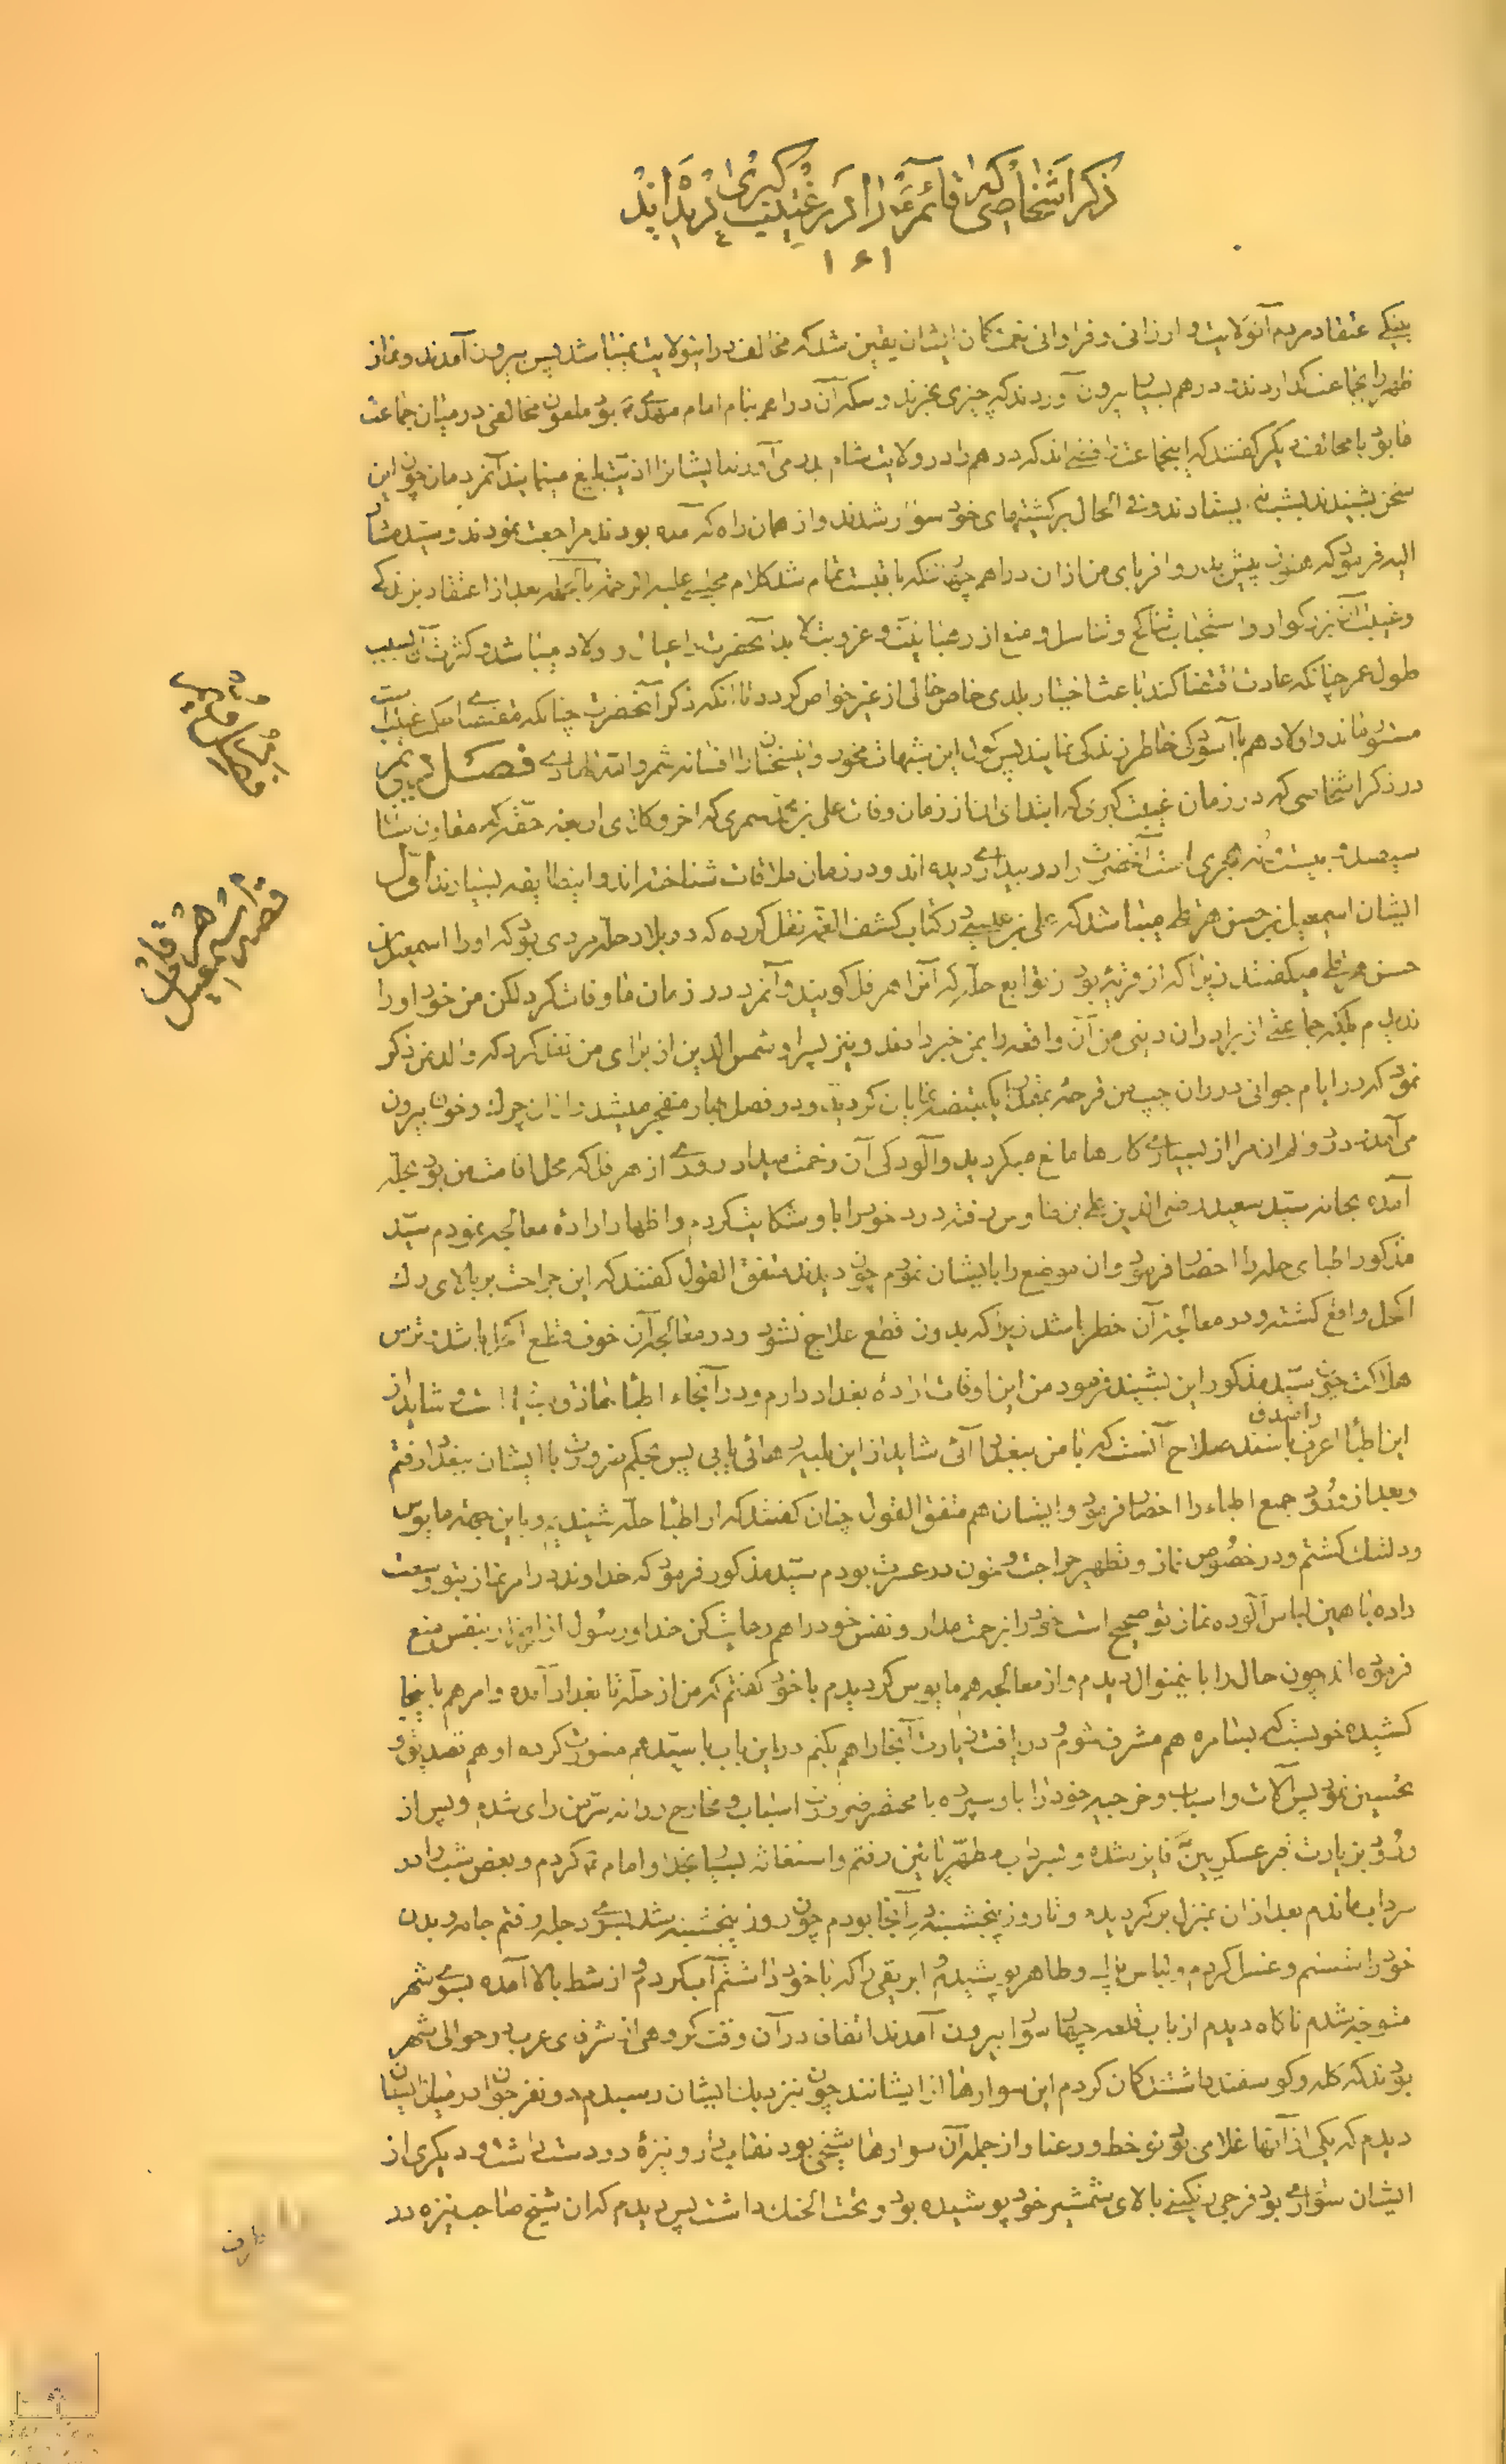 ذکر اشخاصی که قائم را در غیبت کبری دیده اند
۱۶۱
عتقاد مردم آنولایت و ارزانی و فراوانی نعمت کمان ایشان یقین شد که مخالف در اینولایت نمیباشد پس بیرون آمدند و نماز
ظهر را بجماعت کذاردند و درهم بسیار بیرون آوردند که چیزی بخرند و سکه آن دراهم بنام امام مهدی بود ملعون مخالفی در میان جماعت
ما بود با مخالف دیکر کفتند که اینجماعت رافضی اند که درهم را در ولایت شام بدر می آورند ایشانرا اذیت بلیغ مینمایند آنمردمان چون این
سخن بشنیدند و فی الحال بر کشتیهای خود سوار شدند و از همان راه که آمده بودند مراجعت نمودند و سید مشار
الیه فرمود که هنوز پیش پدر و اقربای من ازان دراهم چهار تنکه باقیست تمام شد کلام مجلسی علیه الرحمه بالجمله بعد از اعتقاد بزندکی
و غیبت آن بزرکوار و استحباب تناکح و تناسل و منع از رهبانیت و عزوبت لا بد آنحضرت را عیال و اولاد میباشد و کثرت آن بسبب
طول عمر چنانکه عادت اقتضا کند باعث اختیار بلدی خاص خالی از غیر خواص کردد تا انکه ذکر آنحضرت چنانکه مقتضای غیبت است
مستور ماند و اولاد هم با آسودکی خاطر زندکی نمایند پس کول این شبهات مخور و این سخنان را افسانه شمر والله الهادی فصل
در ذکر اشخاصی که در زمان غیبت کبری که ابتدای ان از زمان وفات علی بن محمد سمری که اخر وکلای اربعه حقه که مقارن سنهٔ
سیصد و بیست و نه هجری است آنحضرت را در بیداری دیده اند و در زمان ملاقات شناخته اند و اینطایفه بسیارند اول
ایشان اسمعیل بن حسن هرقلی میباشد که علی بن عیسی در کتاب کشف الغمه نقل کرده که در بلاد حله مردی بود که او را اسمعیل بن
حسن هرقلی میکفتند زیرا که از قریه بود از توابع حله که آنرا هرقل کویند و آنمرد در زمان ما وفات کرد لکن من خود او را
ندیدم بلکه جماعتی از برادران دینی من آن واقعه را بمن خبر دادند و نیز پسر او شمس الدین از برای من نقل کرد که والد من ذکر
نمود که در ایام جوانی در ران چپ من قرحهٔ بمقدار یکقبضه نمایان کردید و در فصل بهار منفجر میشد و ازان چرک و خون بیرون
می آمد و درد و الم ان مرا از بسیاری کارها مانع میکردید و آلودکی آن زحمت میداد روزی از هرقل که محل اقامت من بود بحله
آمده بخانه سید سعید رضی الدین علی بن طاوس رفته درد خود را باو شکایت کردم و اظهار ارادهٔ معالجه نمودم سید
مذکور اطبای حله را احضار فرمود و ان موضع را بایشان نمودم چون دیدند متفق القول کفتند که این جراحت بر بالای رک
اکحل واقع کشته و در معالجه آن خطر باشد زیرا که بدون قطع علاج نشود و در معالجهٔ آن خوف قطع اکحل باشد و ترس
هلاکت چون سید مذکور این بشنید فرمود من این اوقات ارادهٔ بغداد دارم و در آنجاء اطباء حاذق بسیار است و شاید از
این اطبا اعرف باشند صلاح آنست که با من ببغداد آئی شاید از این بلیه رهائی یابی پس بحکم ضرورت با ایشان ببغداد رفتم
و بعد از ورود جمیع اطباء را احضار فرمود و ایشان هم متفق القول چنان کفتند که از اطباء حله شنیدیم و باین جهة مایوس
و دلتنک کشتم و در خصوص نماز و تطهیر جراحت و خون در عسرت بودم سید مذکور فرمود که خداوند در امر نماز بتو وسعت
داده با همین لباس آلوده نماز تو صحیح است خود را زحمت مدار و نفس خود را هم رعایت کن خدا و رسول از اضرار بنفس منع
فرموده اند چون حال را باینمنوال دیدم و از معالجه هم مایوس کردیدم با خود کفتم که من از حله تا بغداد آمده و امر هم باینجا
کشیده خوبست که بسامره هم مشرف شوم و دریافت زیارت آنجا را هم بکنم در این باب با سید هم مشورت کرده او هم تصدیق و
تحسین نمود پس آلات و اسباب و خرجیه خود را باو سپرده با مختصر ضرورت اسباب و مخارج روانه سرمن رای شدم و پس از
ورود بزیارت قبر عسکریین فایز شده و بسرداب مطهر پائین رفتم و استغاثه بسیار بخدا و امام کردم و بعض شب را در
سرداب ماندم بعد ازان بمنزل برکردیدم و تا روز پنجشنبه در آنجا بودم چون روز پنجشنبه شد بسوی دجله رفتم جامه و بدن
خود را شستم و غسل کردم و لباس پاک و طاهر پوشیدم و ابریقی را که با خود داشتم آب کردم و از شط بالا آمده بسوی شهر
متوجه شدم ناکاه دیدم از باب قلعه چهار سوار بیرون آمدند اتفاق در آن وقت کروهی از شرفای عرب در حوالی شهر
بودند که کله و کوسفند داشتند کمان کردم این سوارها از ایشانند چون نزدیک ایشان رسیدم دو نفر جوان در میان ایشان
دیدم که یکی از آنها غلامی بود نو خط و رعنا و از جمله آن سوارها شیخی بود نقاب دار و نیزهٔ در دست داشت و دیکری از
ایشان سواری بود فرجی رنکینی بالای شمشیر خود پوشیده بود و تحت الحنک داشت پس دیدم که ان شیخ صاحب نیزه در
قصهٔ اسمعیل هرقلی
طرف